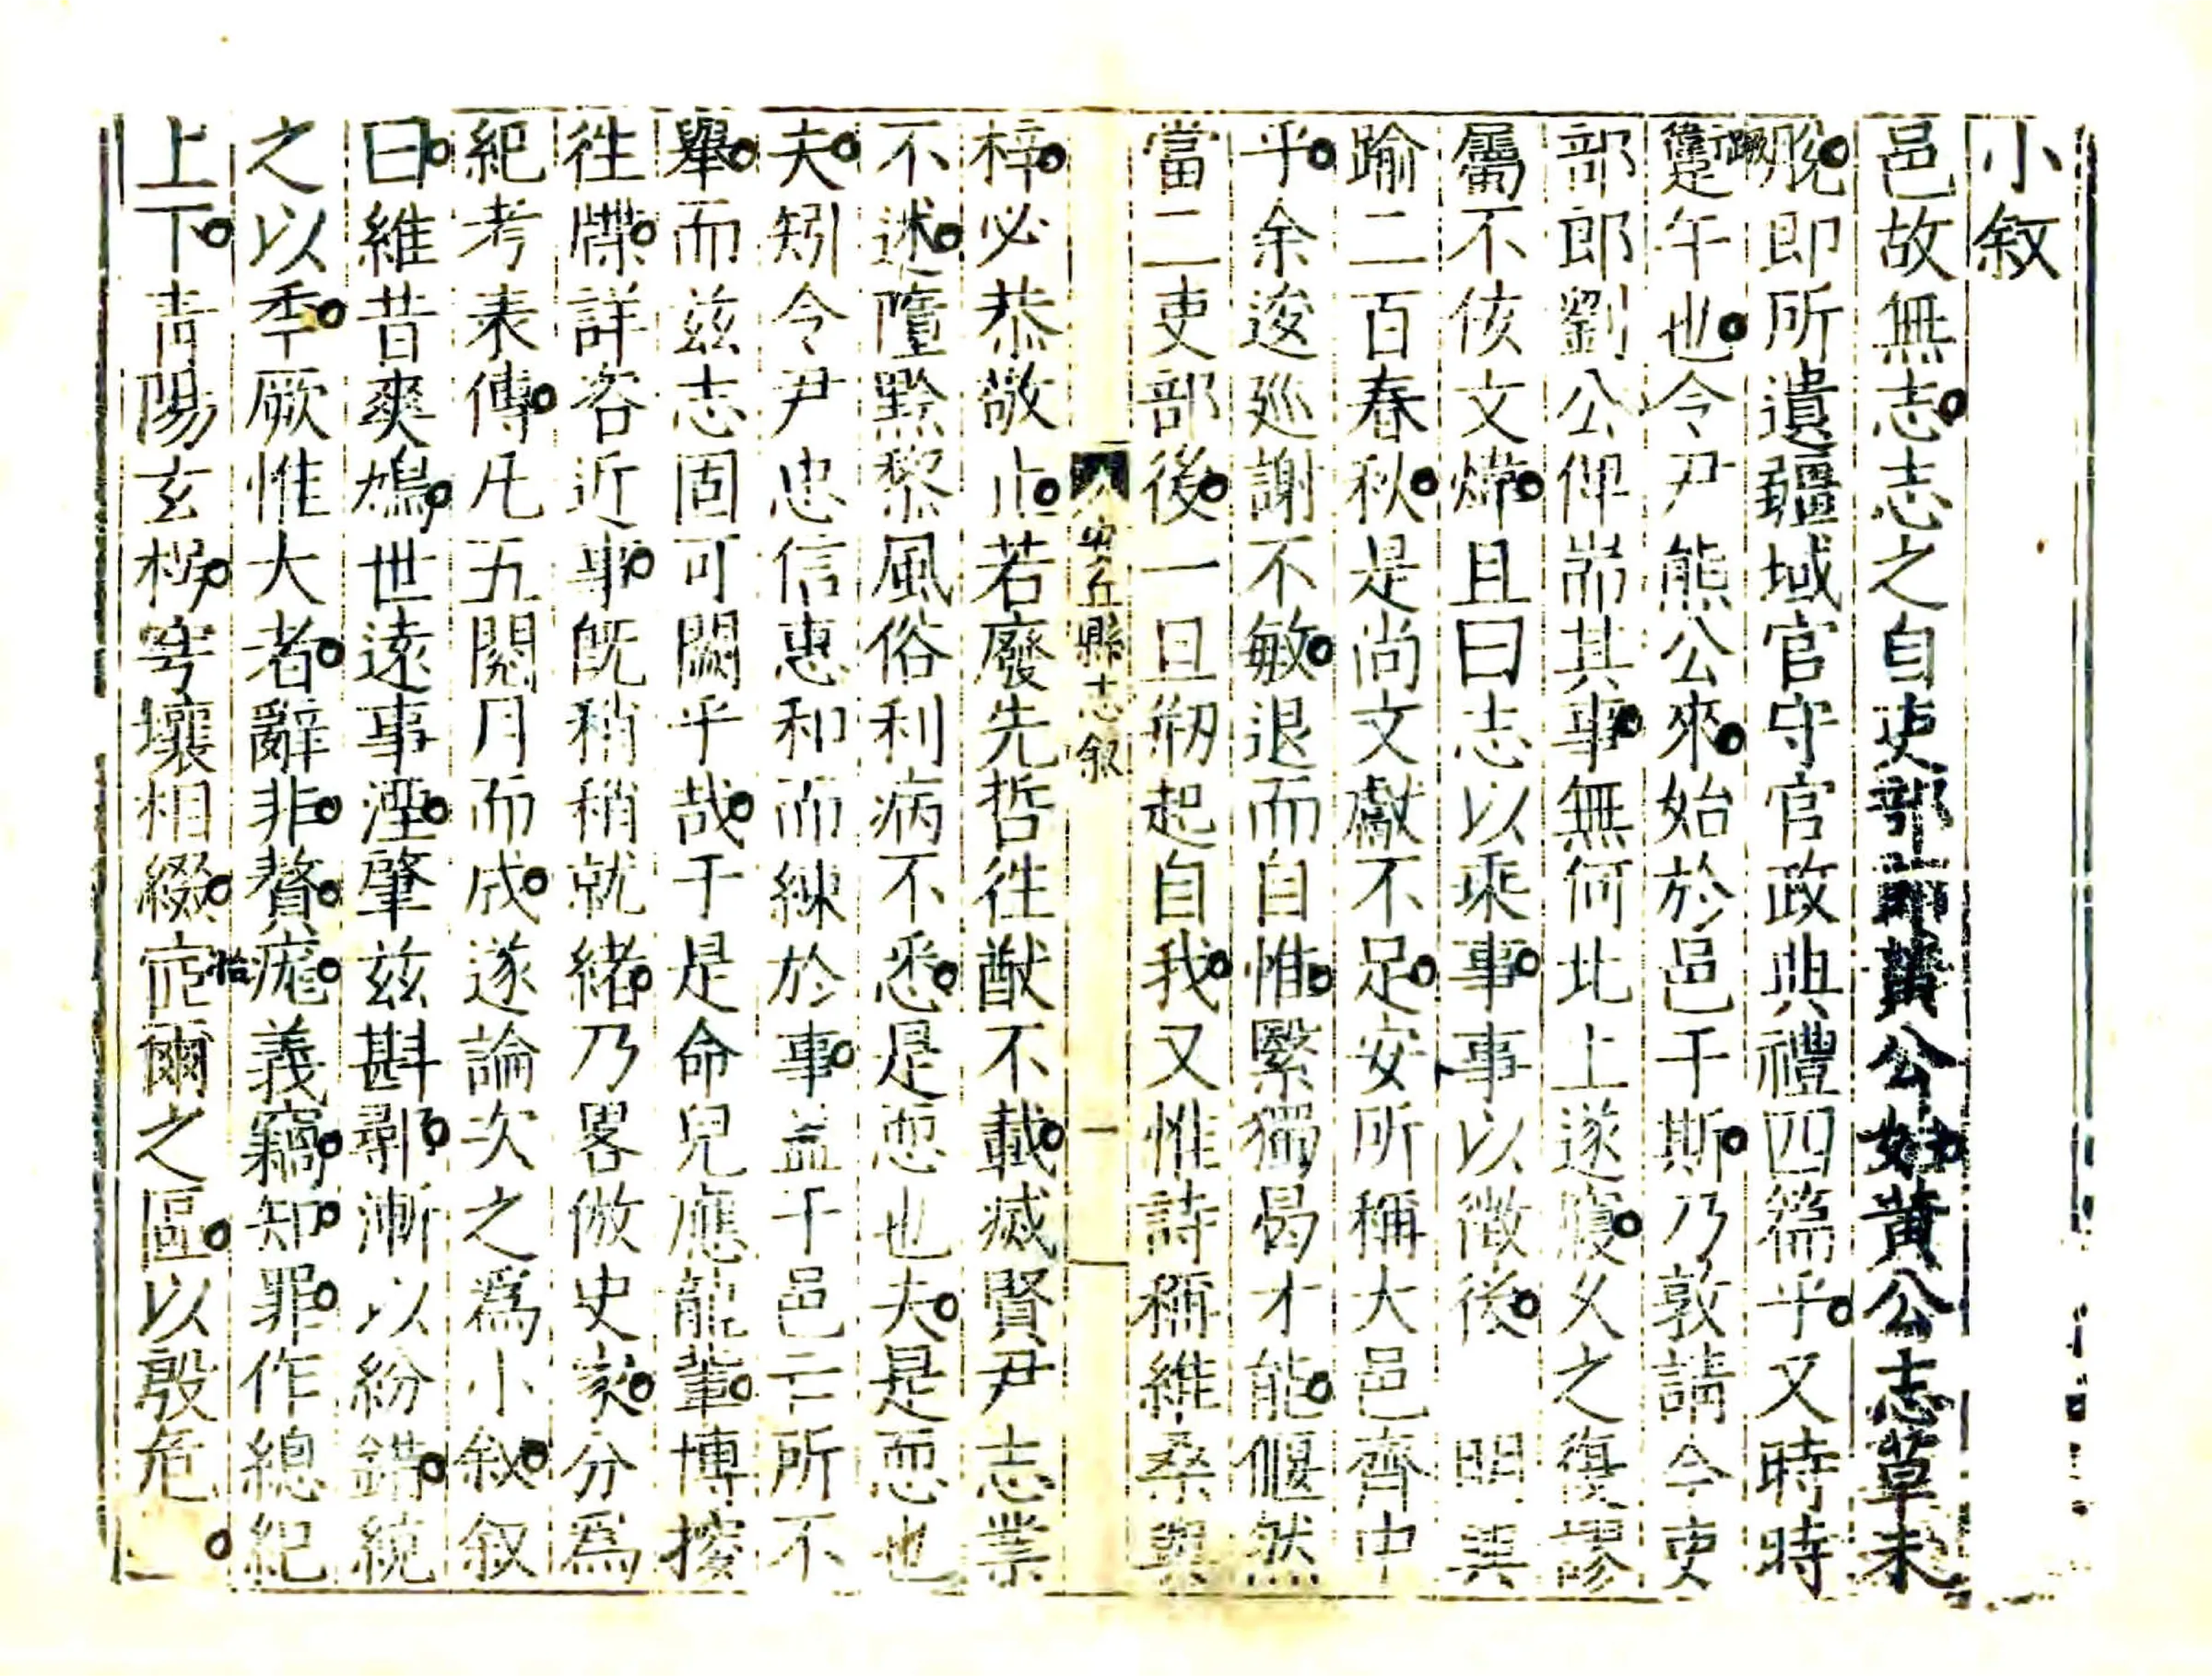 小叙
邑故無志志之自吏部郎黃公始黃公志草未
脫即所遺疆域官守官政典禮四篇乎又時時
躗午也令尹熊公來始於邑于斯乃敦請今吏
部郎劉公俾耑其事無何北上遂寢久之復謬
屬不佞文煒且曰志以乘事事以徵後 明興
踰二百春秋是尚文獻不足安所稱大邑齊中
乎余逡巡謝不敏退而自惟緊獨曷才能偃然
當二吏部後一旦剏起自我又惟詩稱維桑與
梓必恭敬止若廢先哲往猷不載滅賢尹志業
不述墮黔黎風俗利病不悉是恧也夫是恧也
夫矧令尹忠信惠和而練於事益于邑亡所不
舉而兹志固可闕乎哉于是命兒應龍輩博搜
徃牒詳咨近事旣稍稍就緒乃畧倣史家分爲
紀考表傳凡五閱月而成遂論次之爲小叙叙
曰維昔爽鳩世遠事湮肇兹斟鄩漸以紛錯統
之以季厥惟大者辭非贅疣義竊知罪作總紀
上下青陽玄枵穹壤相綴窊爾之區以殷危
安丘縣志叙
一